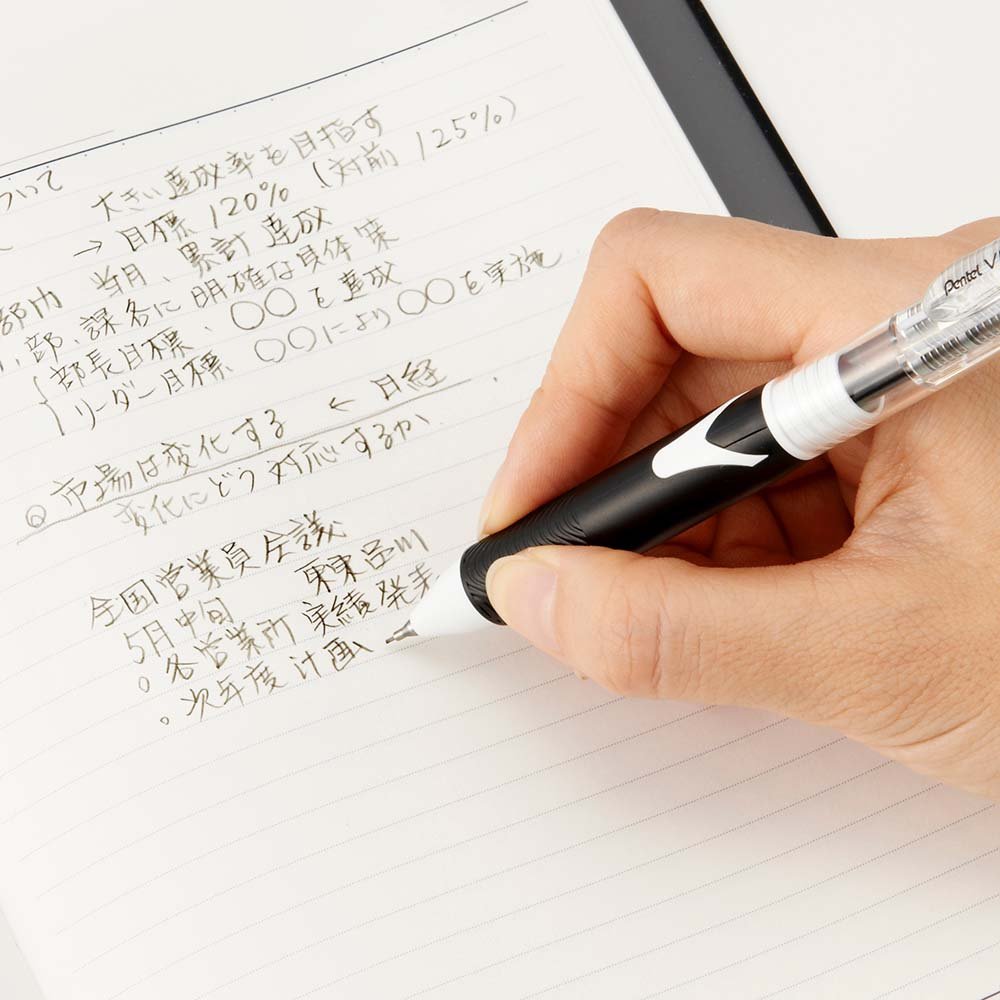 ついて
大きい達成率を目指す
→ 目標 120% (対前 125%)
部内 当月、累計 達成
、部、課各に明確な具体策
部長目標、○○を達成
リーダー目標 ○○により○○を実施
◎ 市場は変化する ← 日経
変化にどう対応するか
全国営業員会議
5月中旬
。各営業所 実績発表
。次年度計画
Pentel